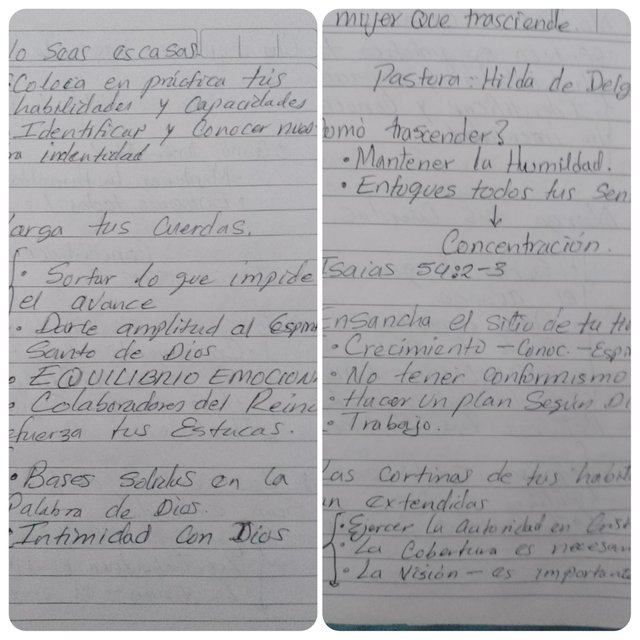 lo Seas escasas
Coloca en práctica tus
habilidades y Capacidades
Identificar y Conocer nues
ra indentidad
arga tus Cuerdas.
• Sortar lo que impide
el avance
• Darte amplitud al Espiri
Santo de Dios
• EQUILIBRIO EMOCION
• Colaboradores del Reino
efuerza tus Estacas.
• Bases Solidas en la
Palabra de Dios.
• Intimidad Con Dios
mujer Que trasciende.
Pastora: Hilda de Delg
omó trascender?
• Mantener la Humildad.
• Enfoques todos tus Sen
↓
Concentración.
Isaias 54:2-3
Ensancha el sitio de tu
• Crecimiento - Conoc. - Espir
• No tener conformismo
• Hacer Un plan Según Di
• Trabajo.
Las Cortinas de tus habit
an extendidas
• Ejercer la autoridad en
• La Cobertura es necesar
• La Visión - es importante